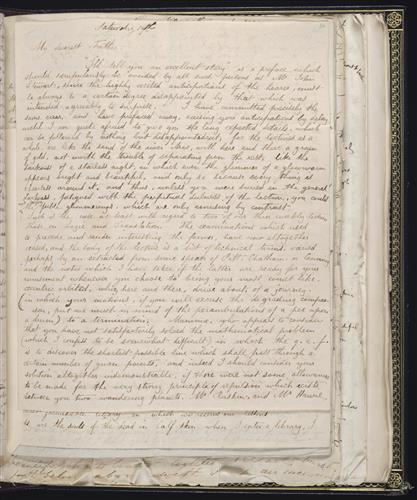 Saturday, 14th
My dearest Father
"I'll tell you an excellent story" is a preface which
should scrupulously be avoided by all such persons as Mr John
Stewart, since the highly excited anticipations of the hearer, must
be always to a certain degree disappointed by that which was
intended agreeably to surprise. I have committed precisely the
same error, and have prefaced away, causing your anticipations by delay
until I am quite afraid to give you the long expected story, which
is to followed by nothing but disappointment, for the lectures as a
whole, are like the sand of the river, here, with here and there a grain
of gold, not worth the trouble of separating from the silt, like the
darkness of a starless night, in which even the glimmer of a glowworm
appears bright and beautiful, and only so because every thing is
starless around it, and thus, until you were buried in the general
darkness, fatigued with the perpetual dullness of the lecture, you could
not the glimmerings, which are only amusing by contrast.
Such is the case at least with regard to two of our three weekly lectures
those on logic and translation. The examinations which used
to precede, and render interesting the former, have now altogether
ceased, and the body of the lecture is a list of technical terms, varied
perhaps by an extracted from some speech of Ld Chatham, or Canning
and the notes which I have taken of the latter are ready for your
amusement whenever you choose to bring your most comet like,
eccentric orbited, whiz here and there, drive about, of a journey,
(in which your motions, if you will excuse the degrading comparison,
put one much in mind of the perambulations of a pea upon
a drum,) to a termination. Mamma, who appears to consider
that you have not satisfactorily solved the mathematical problem
(which I confess to be somewhat difficult) in which the q. e. f.
is to discover the shortest possible line which shall pass through a
certain number of given points, and indeed I should consider your
solution altogether indemonstrable, if there were not some allowance
to be made for the very strong principle of repulsion which exists
between you two wandering planets, Mr Ruskin, and Mr
library in which we
as are the suits of the dead in half skin, when I enter a library, I